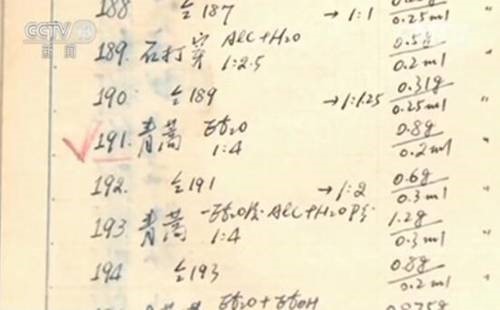 CCTV 13
新闻
188 仝187 →1:1 0.25ml "
189. 石打穿 Alc+H2O 0.5g
1:2.5 0.2ml "
190. 仝189 →1:1.25 0.31g
0.25ml "
191. 青蒿 0.8g
1:4 0.2ml "
192. 仝191 →1:2 0.6g
0.3ml "
193 青蒿 Alc+H2O 1.2g
1:4 0.3ml "
194 仝193 0.8g
0.2ml "
0.875g